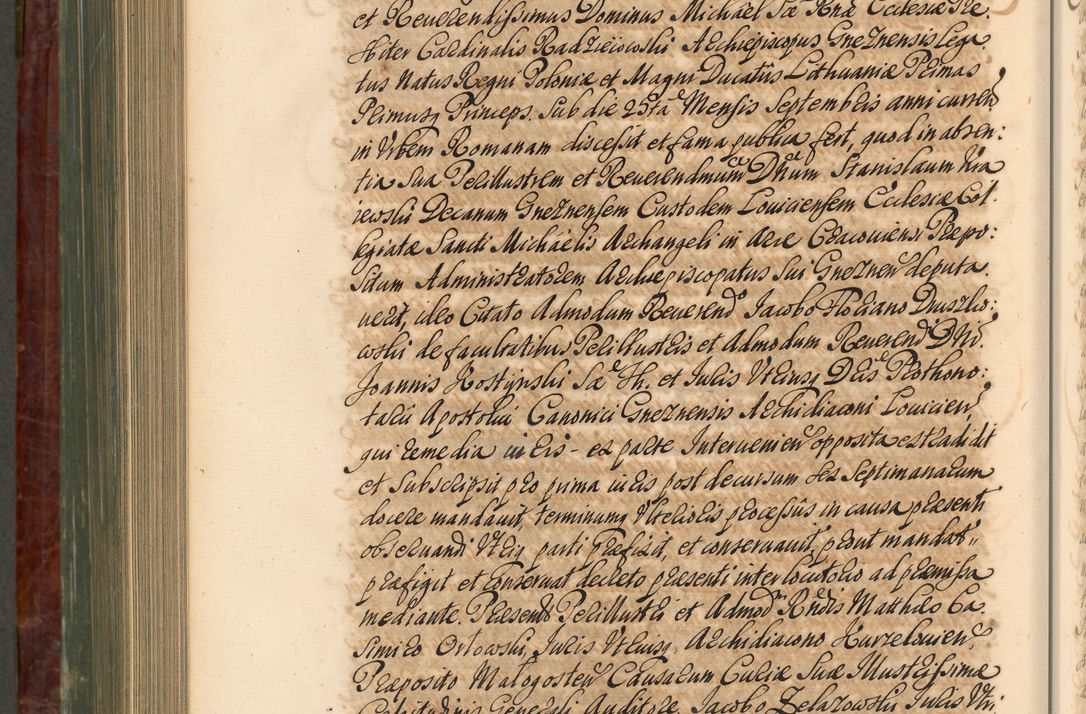 et Reverendissimus Dominus Michael Sæ Rnæ Ecclesiæ Præ:
sbiter Cardinalis Radzieiowski Archiepiscopus Gneznensis Lega
tus Natus Regni Poloniæ et Magni Ducatûs Lithuaniæ Primas
Primusq Princeps, Sub die 25ta Mensis Septembris anni curren
in Vrbem Romanam discessit et fama publica fert, quod in absen:
tia sua Perillustrem et Reverendmum Dnum Stanislaum
iewski Decanum Gneznensem Custodem Louiciensem Ecclesiæ Col.
legiatæ Sancti Michaëlis Archangeli in Arce Cracouiensi Præpo:
situm Administratorem Archiepiscopatus Sui Gneznen deputa
uerit, ideo Citato Admodum Reuerend Jacobo Floriano
wski de facultatibus Perillustris et Admodum Reverend Dni
Joannis Kostynski Sæ Th. et Juris Vtriusq Dris Prothono:
tarii Apostolici Canonici Gneznensis Archidiaconi Louicien
qui remedia iuris ex parte Intervenien opposita extradidit
et subscripsit pro prima iuris post decursum sex Septimanarum
docere mandauit, terminumq Vlterioris processûs in causa præsenti
obseruandi Vtriq parti præfixit, et conseruauit, prout mandat
præfigit et conseruat decreto præsenti interlocutorio ad præmissa
mediante. Præsente Perillustri et Admod Rndis Matthæo Ca
simiro Orlowski, Juris Vtriusq, Archidiacono Kurzelouien
Præposito Małogosten Causarum Curiæ Suæ Illustrissimæ
Celsitudinis Generali Auditore, Jacobo Zelazowski Juris Vtri